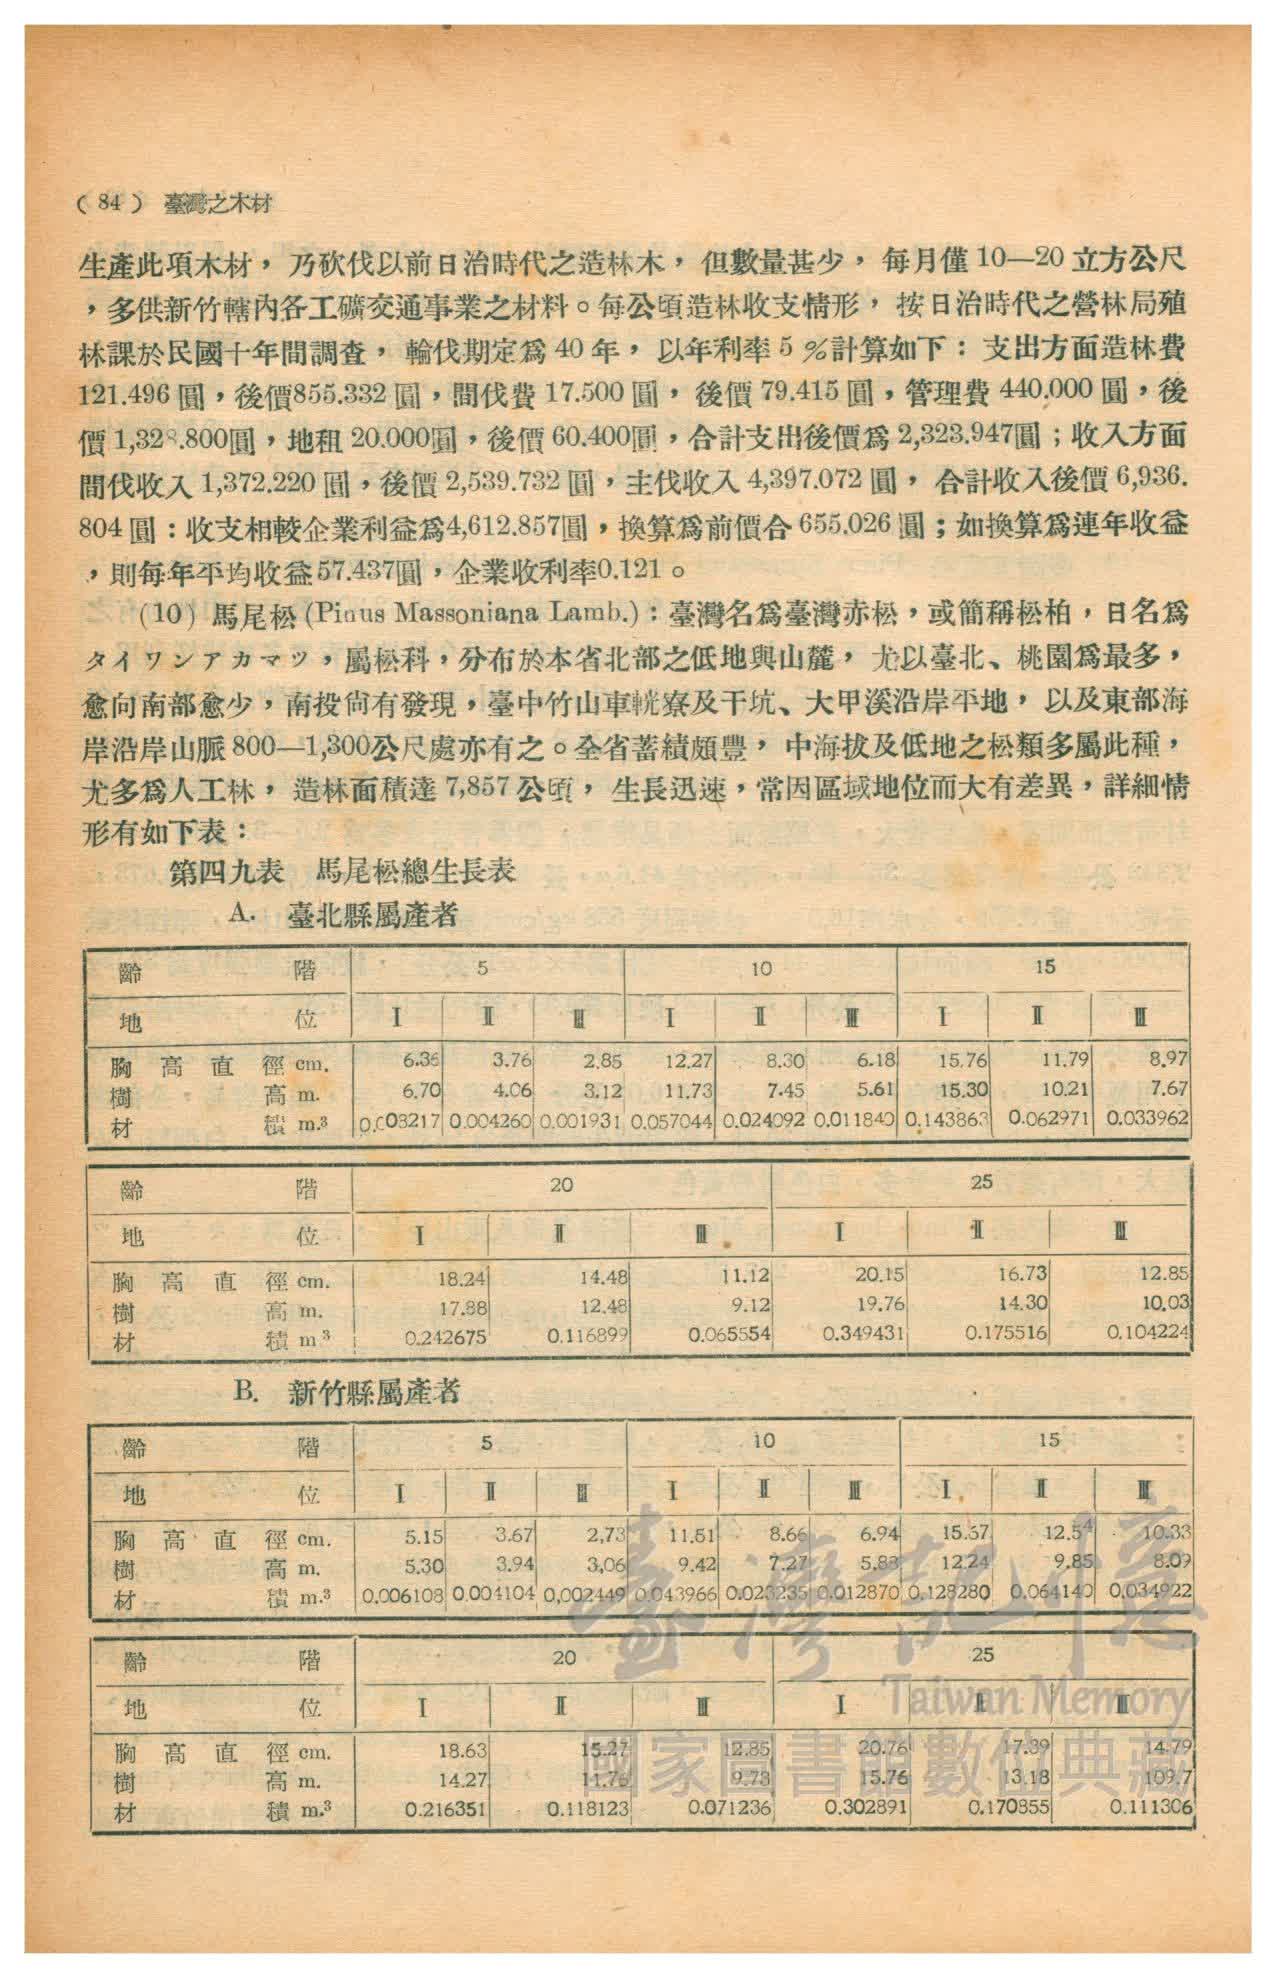 ( 84 ) 臺灣之木材
生產此項木材，乃砍伐以前日治時代之造林木，但數量甚少，每月僅10—20立方公尺
，多供新竹轄內各工礦交通事業之材料。每公頃造林收支情形，按日治時代之營林局殖
林課於民國十年間調查，輪伐期定爲40年，以年利率5%計算如下：支出方面造林費
121.496圓，後價855.332圓，間伐費17.500圓，後價79.415圓，管理費440.000圓，後
價1,328.800圓，地租20.000圓，後價60.400圓，合計支出後價爲2,323.947圓；收入方面
間伐收入1,372.220圓，後價2,539.732圓，主伐收入4,397.072圓，合計收入後價6,936.
804圓：收支相較企業利益爲4,612.857圓，換算爲前價合655.026圓；如換算爲連年收益
，則每年平均收益57.437圓，企業收利率0.121。
(10) 馬尾松(Pinus Massoniana Lamb.)：臺灣名爲臺灣赤松，或簡稱松柏，日名爲
タイワンアカマツ，屬松科，分布於本省北部之低地與山麓，尤以臺北、桃園爲最多，
愈向南部愈少，南投尙有發現，臺中竹山車輄寮及干坑、大甲溪沿岸平地，以及東部海
岸沿岸山脈800—1,300公尺處亦有之。全省蓄績頗豐，中海拔及低地之松類多屬此種，
尤多爲人工林，造林面積達7,857公頃，生長迅速，常因區域地位而大有差異，詳細情
形有如下表：
第四九表 馬尾松總生長表
A. 臺北縣屬產者
齡階 5 10 15
地位 Ⅰ Ⅱ Ⅲ Ⅰ Ⅱ Ⅲ Ⅰ Ⅱ Ⅲ
胸高直徑 cm. 6.36 3.76 2.85 12.27 8.30 6.18 15.76 11.79 8.97
樹高 m. 6.70 4.06 3.12 11.73 7.45 5.61 15.30 10.21 7.67
材積 m.³ 0.008217 0.004260 0.001931 0.057044 0.024092 0.011840 0.143863 0.062971 0.033962
齡階 20 25
地位 Ⅰ Ⅱ Ⅲ Ⅰ Ⅱ Ⅲ
胸高直徑 cm. 18.24 14.48 11.12 20.15 16.73 12.85
樹高 m. 17.88 12.48 9.12 19.76 14.30 10.03
材積 m³ 0.242675 0.116899 0.065554 0.349431 0.175516 0.104224
B. 新竹縣屬產者
齡階 5 10 15
地位 Ⅰ Ⅱ Ⅲ Ⅰ Ⅱ Ⅲ Ⅰ Ⅱ Ⅲ
胸高直徑 cm. 5.15 3.67 2.73 11.51 8.66 6.94 15.57 12.54 10.33
樹高 m. 5.30 3.94 3.06 9.42 7.27 5.88 12.24 9.85 8.09
材積 m.³ 0.006108 0.004104 0.002449 0.043966 0.023235 0.012870 0.128280 0.064140 0.034922
臺灣記憶
齡階 20 25
Taiwan Memory
地位 Ⅰ Ⅱ Ⅲ Ⅰ Ⅱ Ⅲ
國家圖書館數位典藏
胸高直徑 cm. 18.63 15.27 12.85 20.76 17.39 14.79
樹高 m. 14.27 11.76 9.73 15.76 13.18 109.7
材積 m.³ 0.216351 0.118123 0.071236 0.302891 0.170855 0.111306